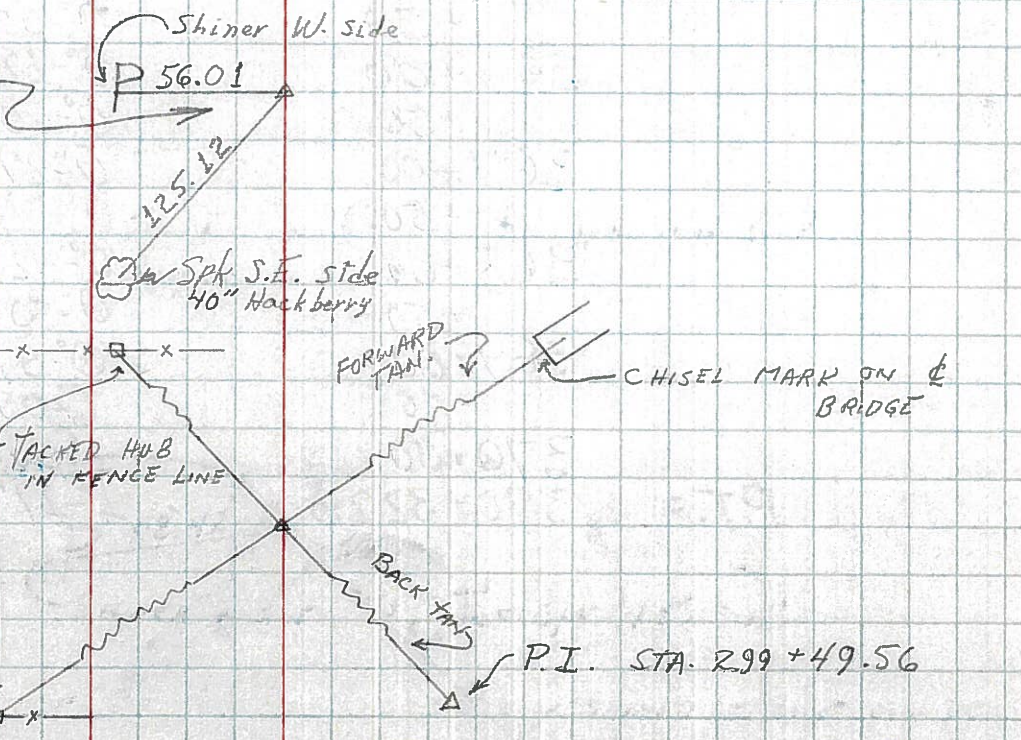 Shiner W. side
P 56.01
125.12
Spk S.E. side
40" Hackberry
FORWARD
TAN.
CHISEL MARK ON ℄
BRIDGE
TACKED HUB
IN FENCE LINE
BACK TAN
P.I. STA. 299+49.56